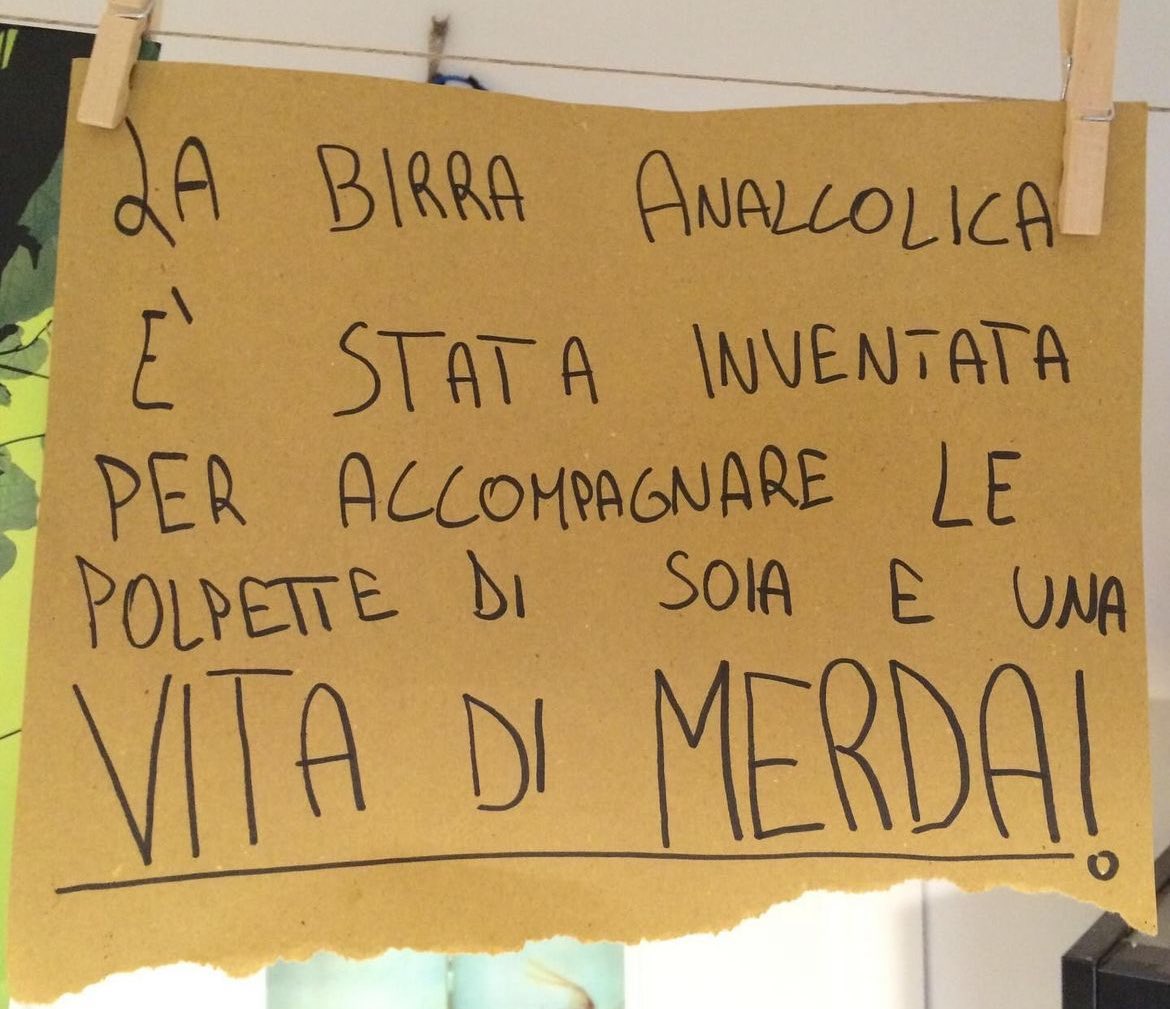 LA BIRRA ANALCOLICA
E' STATA INVENTATA
PER ACCOMPAGNARE LE
POLPETTE DI SOIA E UNA
VITA DI MERDA!